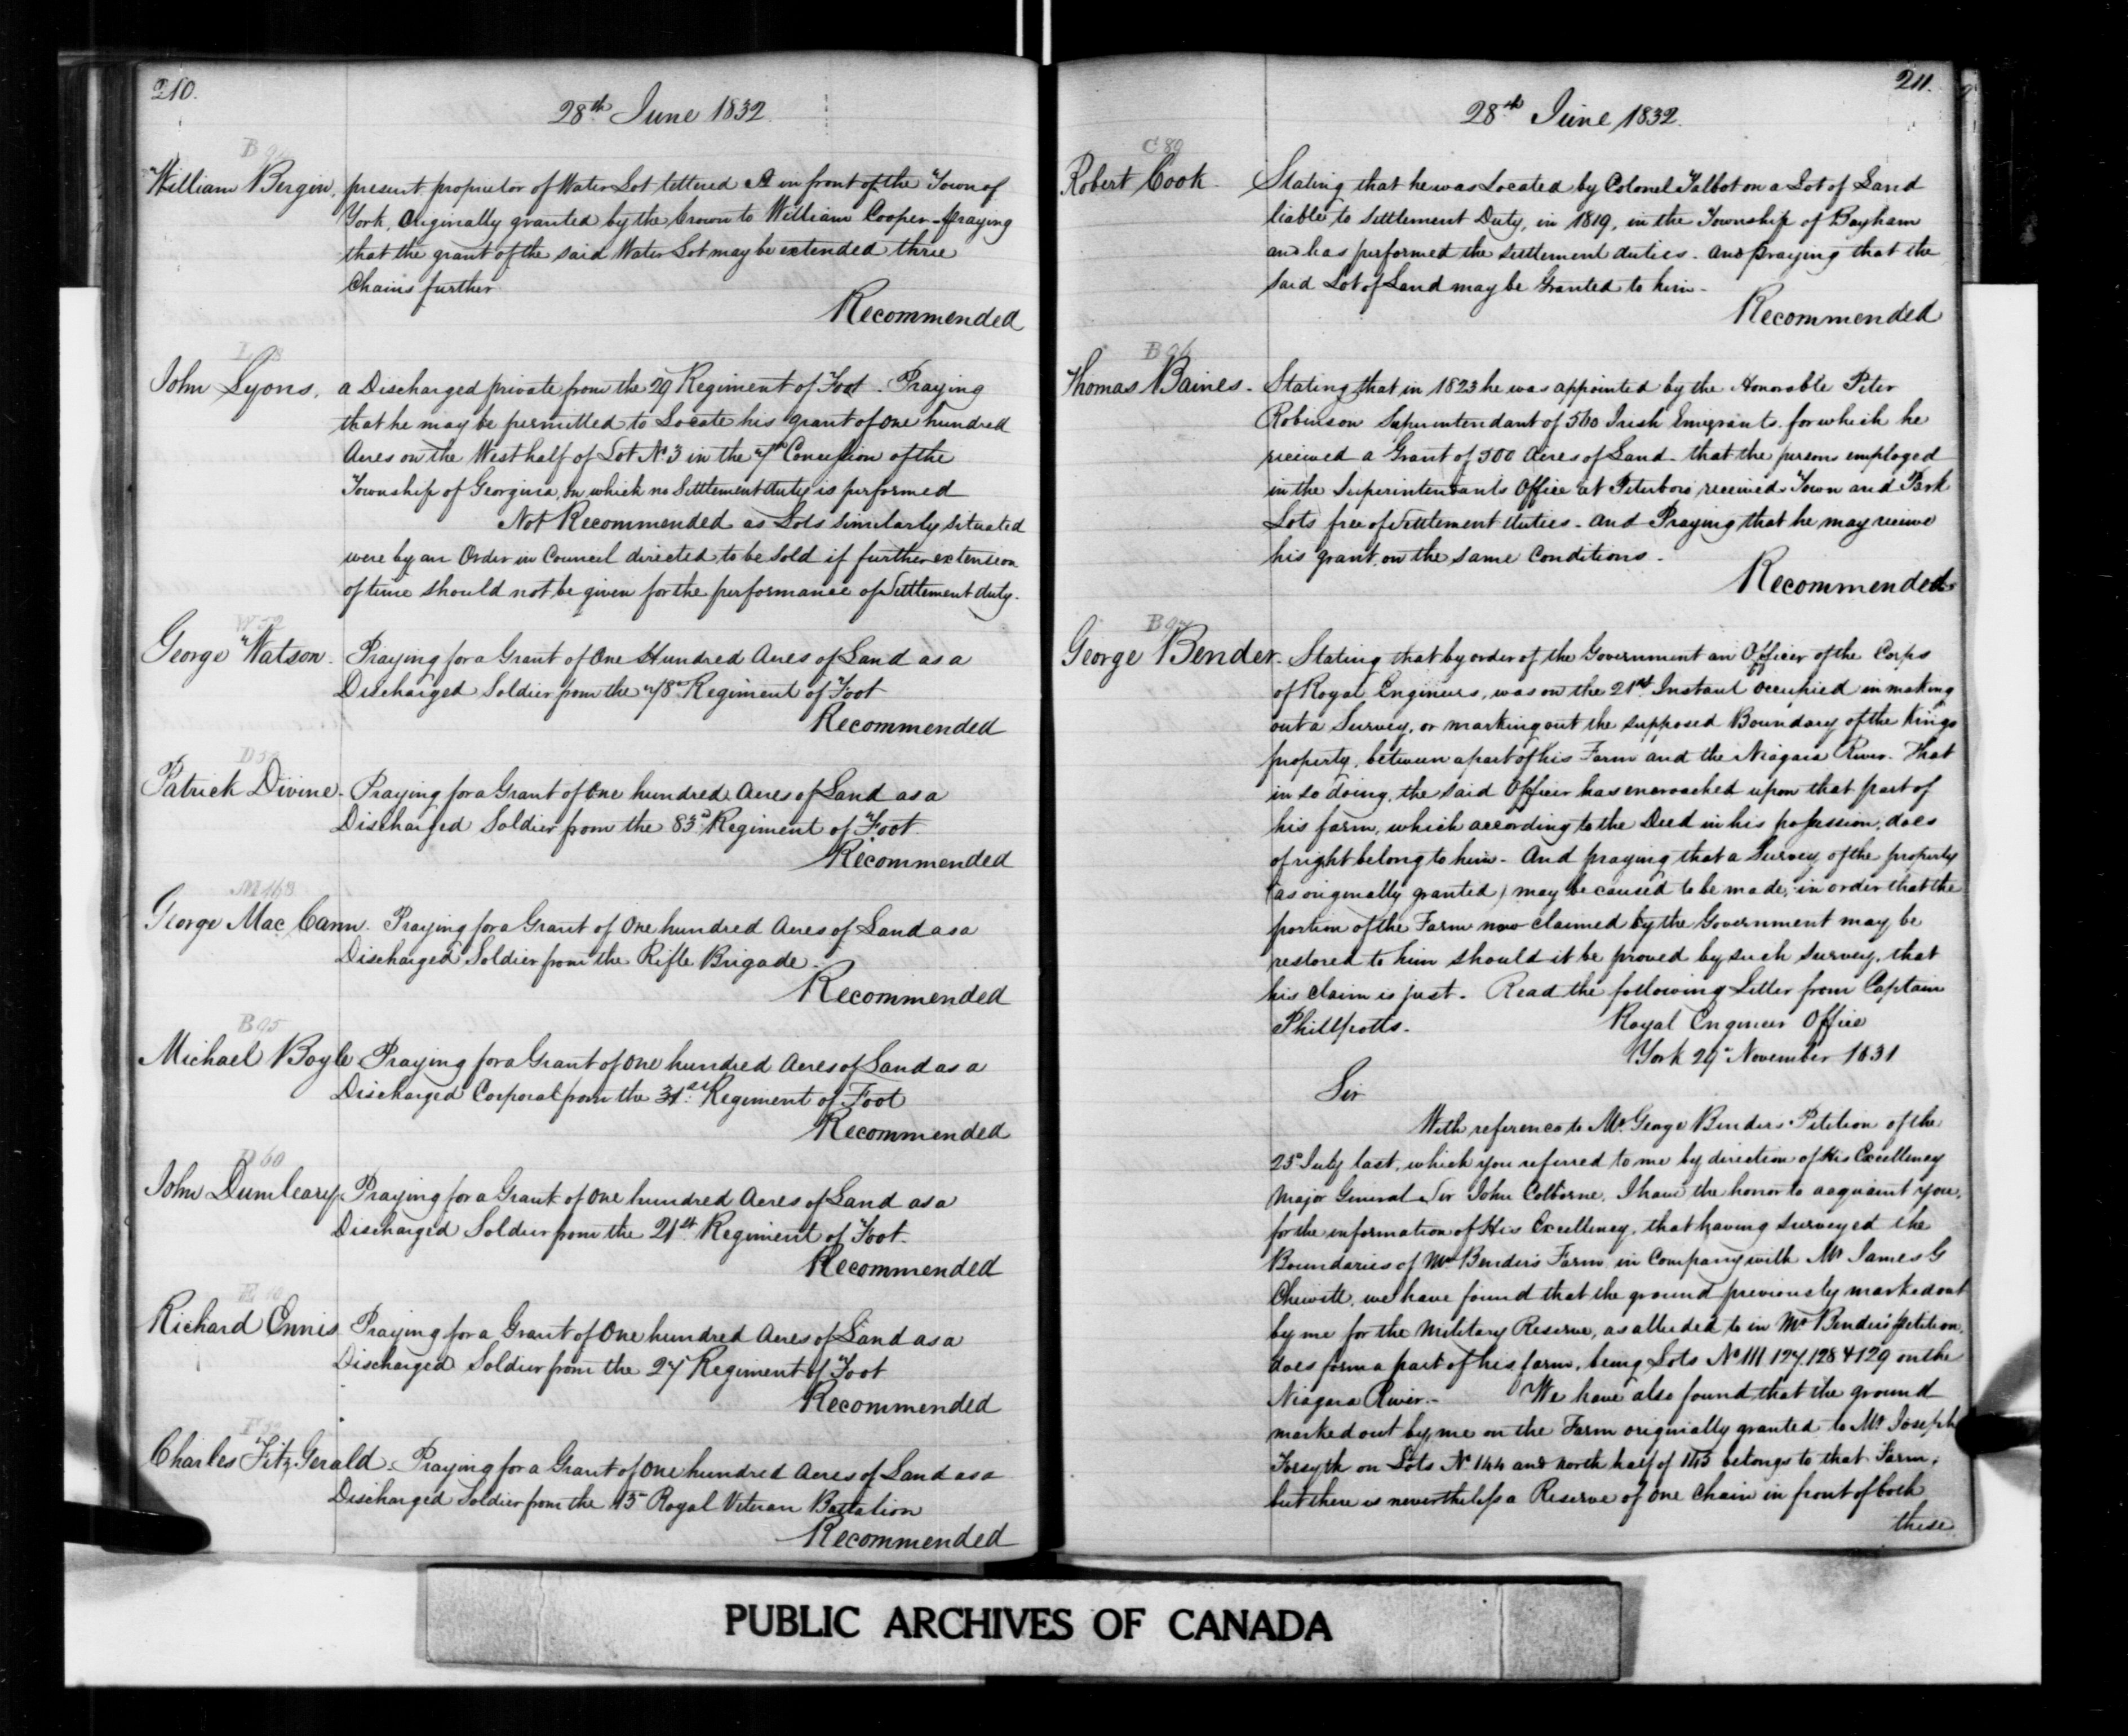 210.
28th June 1832.
William Bergin, present proprietor of Water Lot lettered A in front of the Town of
York, Originally granted by the Crown to William Cooper - praying
that the grant of the said Water Lot may be extended three
Chains further
Recommended
John Lyons. a Discharged private from the 29 Regiment of Foot. Praying
that he may be permitted to Locate his grant of one hundred
Acres on the West half of Lot No 3 in the 7th Concession of the
Township of Georgina, on which no Settlement duty is performed
Not Recommended as Lots similarly situated
were by an Order in Council directed to be Sold if further extension
of time should not be given for the performance of Settlement duty.
George Watson. Praying for a Grant of One Hundred Acres of Land as a
Discharged Soldier from the 78th Regiment of Foot
Recommended
Patrick Divine. Praying for a Grant of One hundred Acres of Land as a
Discharged Soldier from the 83d Regiment of Foot.
Recommended
M 163
George Mac Cann. Praying for a Grant of One hundred Acres of Land as a
Discharged Soldier from the Rifle Brigade.
Recommended
B 95
Michael Boyle Praying for a Grant of One hundred Acres of Land as a
Discharged Corporal from the 31st Regiment of Foot
Recommended
D 60
John Dumleary Praying for a Grant of One hundred Acres of Land as a
Discharged Soldier from the 21st Regiment of Foot.
Recommended
Richard Ennis Praying for a Grant of One hundred Acres of Land as a
Discharged Soldier from the 27 Regiment of Foot
Recommended
Charles Fitz Gerald. Praying for a Grant of One hundred Acres of Land as a
Discharged Soldier from the Royal Veteran Battalion
Recommended
211.
28th June 1832.
C 89
Robert Cook. Stating that he was Located by Colonel Talbot on a Lot of Land
liable to Settlement Duty, in 1819, in the Township of Bayham
and has performed the settlement duties. and praying that the
said Lot of Land may be Granted to him.
Recommended
B 96
Thomas Baines. Stating that in 1823 he was appointed by the Honorable Peter
Robinson Superintendant of 500 Irish Emigrants. for which he
received a Grant of 500 Acres of Land. that the persons employed
in the Superintendants Office at Peterboro received Town and Park
Lots free of Settlement duties. and Praying that he may receive
his grant, on the same Conditions.
Recommended
B 97
George Bender. Stating that by order of the Government an Officer of the Corps
of Royal Engineers, was on the 21st Instant occupied in making
out a Survey, or marking out the supposed Boundary of the Kings
property, between a part of his Farm and the Niagara River. That
in so doing, the said Officer has encroached upon that part of
his farm, which according to the Deed in his possession, does
of right belong to him. And praying that a Survey of the property
(as originally granted) may be caused to be made, in order that the
portion of the Farm now claimed by the Government may be
restored to him should it be proved by such survey, that
his claim is just. Read the following Letter from Captain
Phillpotts.
Royal Engineer Office
York 29th November 1831
Sir
With reference to Mr. George Benders Petition of the
25th July last, which you referred to me by direction of His Excellency
Major General Sir John Colborne, I have the honor to acquaint you,
for the information of His Excellency, that having surveyed the
Boundaries of Mr Benders Farm, in Company with Mr James G
Chewett, we have found that the ground previously marked out
by me for the Military Reserve, as alluded to in Mr Benders petition,
does form a part of his farm, being Lots No 111 127, 128 & 129 on the
Niagara River. We have also found, that the ground
marked out by me on the Farm originally granted to Mr Joseph
Forsyth on Lots No 144 and north half of 145 belongs to that Farm,
but there is nevertheless a Reserve of One Chain in front of both
these
PUBLIC ARCHIVES OF CANADA